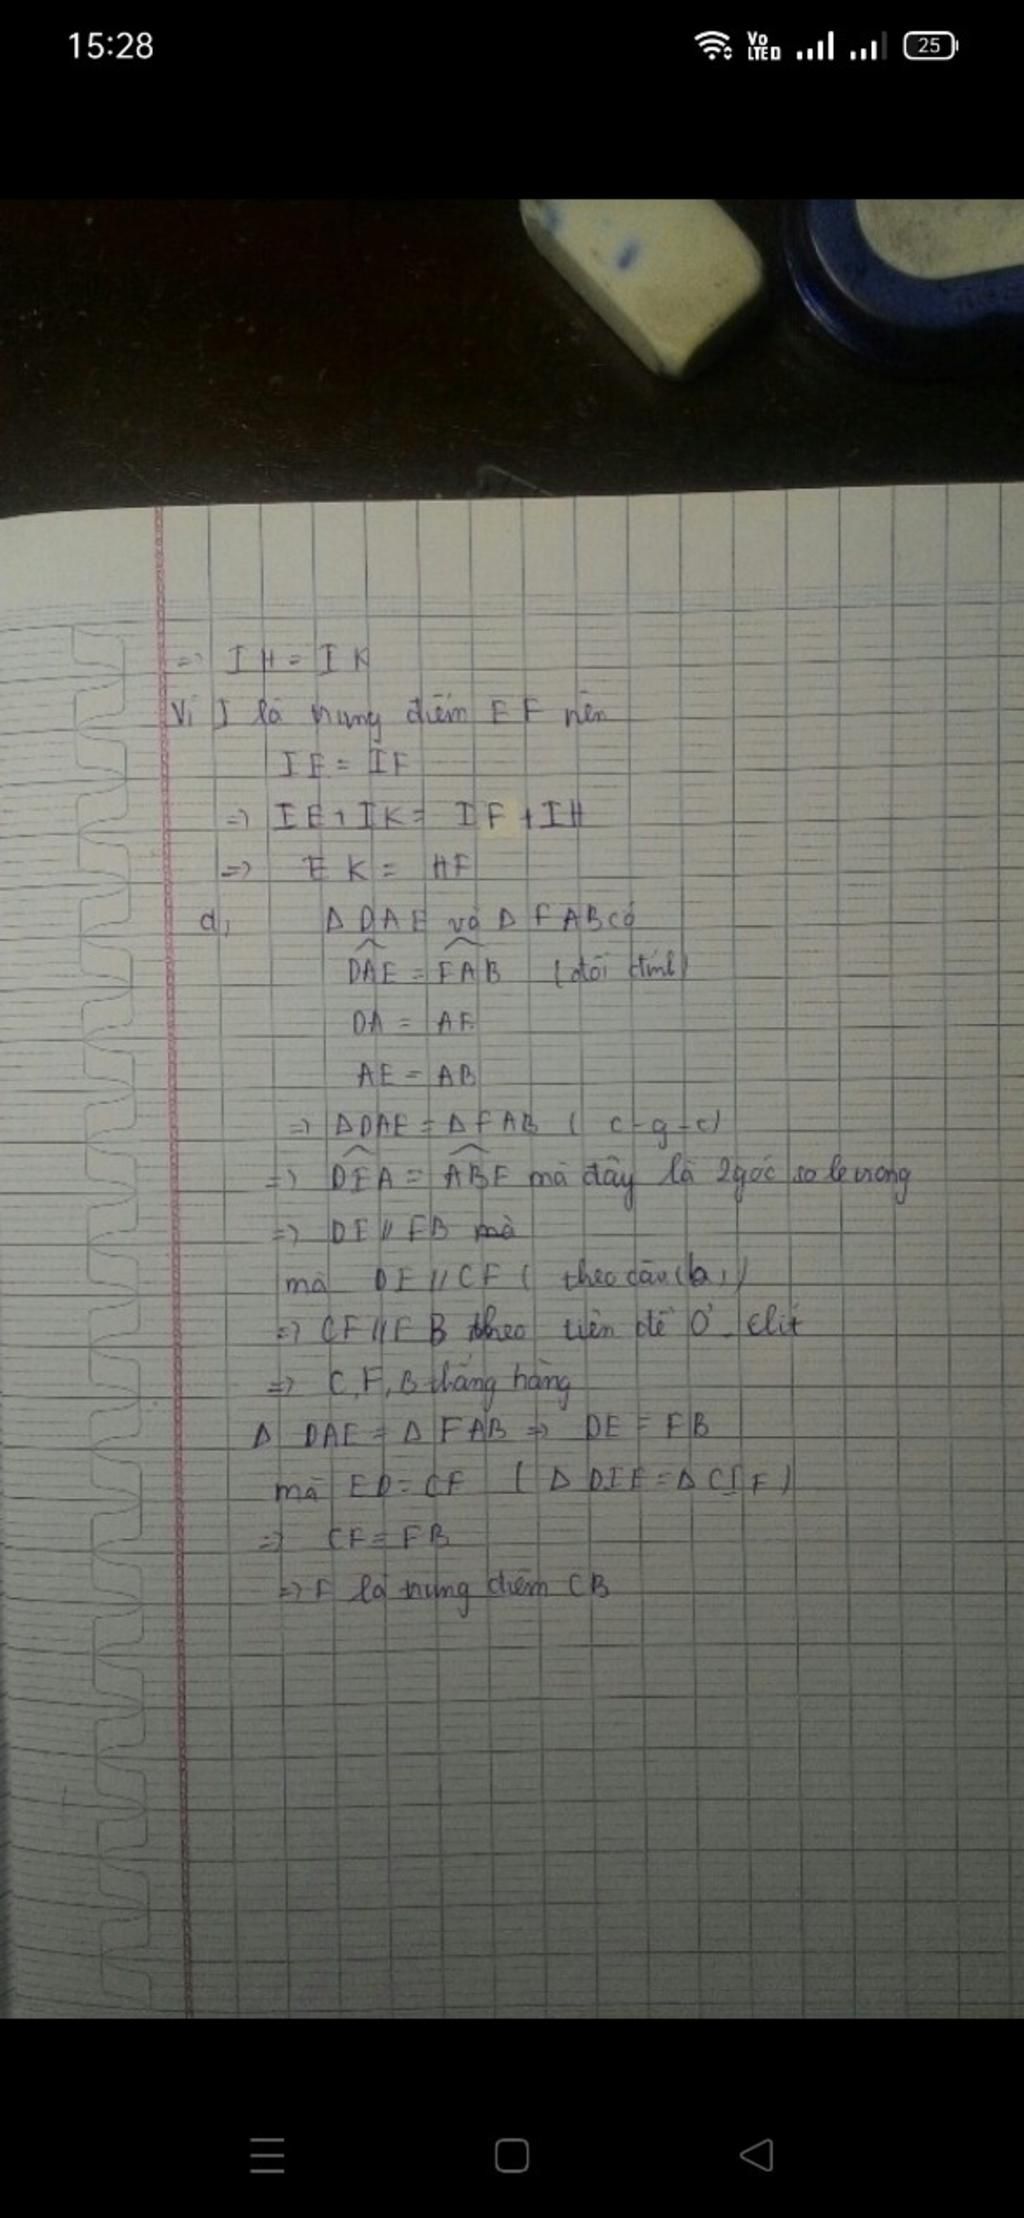 15:28
Vo
LTE D
25
=> IH = IK
Vì I là trung điểm EF nên
IE = IF
=> IE + IK = IF + IH
=> EK = HF
d, Δ DAE và Δ FAB có
DAE = FAB (đối đỉnh)
DA = AF
AE = AB
=> ΔDAE = ΔFAB ( c-g-c)
=> DEA = ABF mà đây là 2 góc so le trong
=> DE // FB mà
mà DE // CF ( theo câu (b,)
=> CF // FB theo tiên đề Ơ-clit
=> C, F, B thẳng hàng
Δ DAE = Δ FAB => DE = FB
mà ED = CF ( Δ DIE = Δ CIF )
=> CF = FB
=> F là trung điểm CB